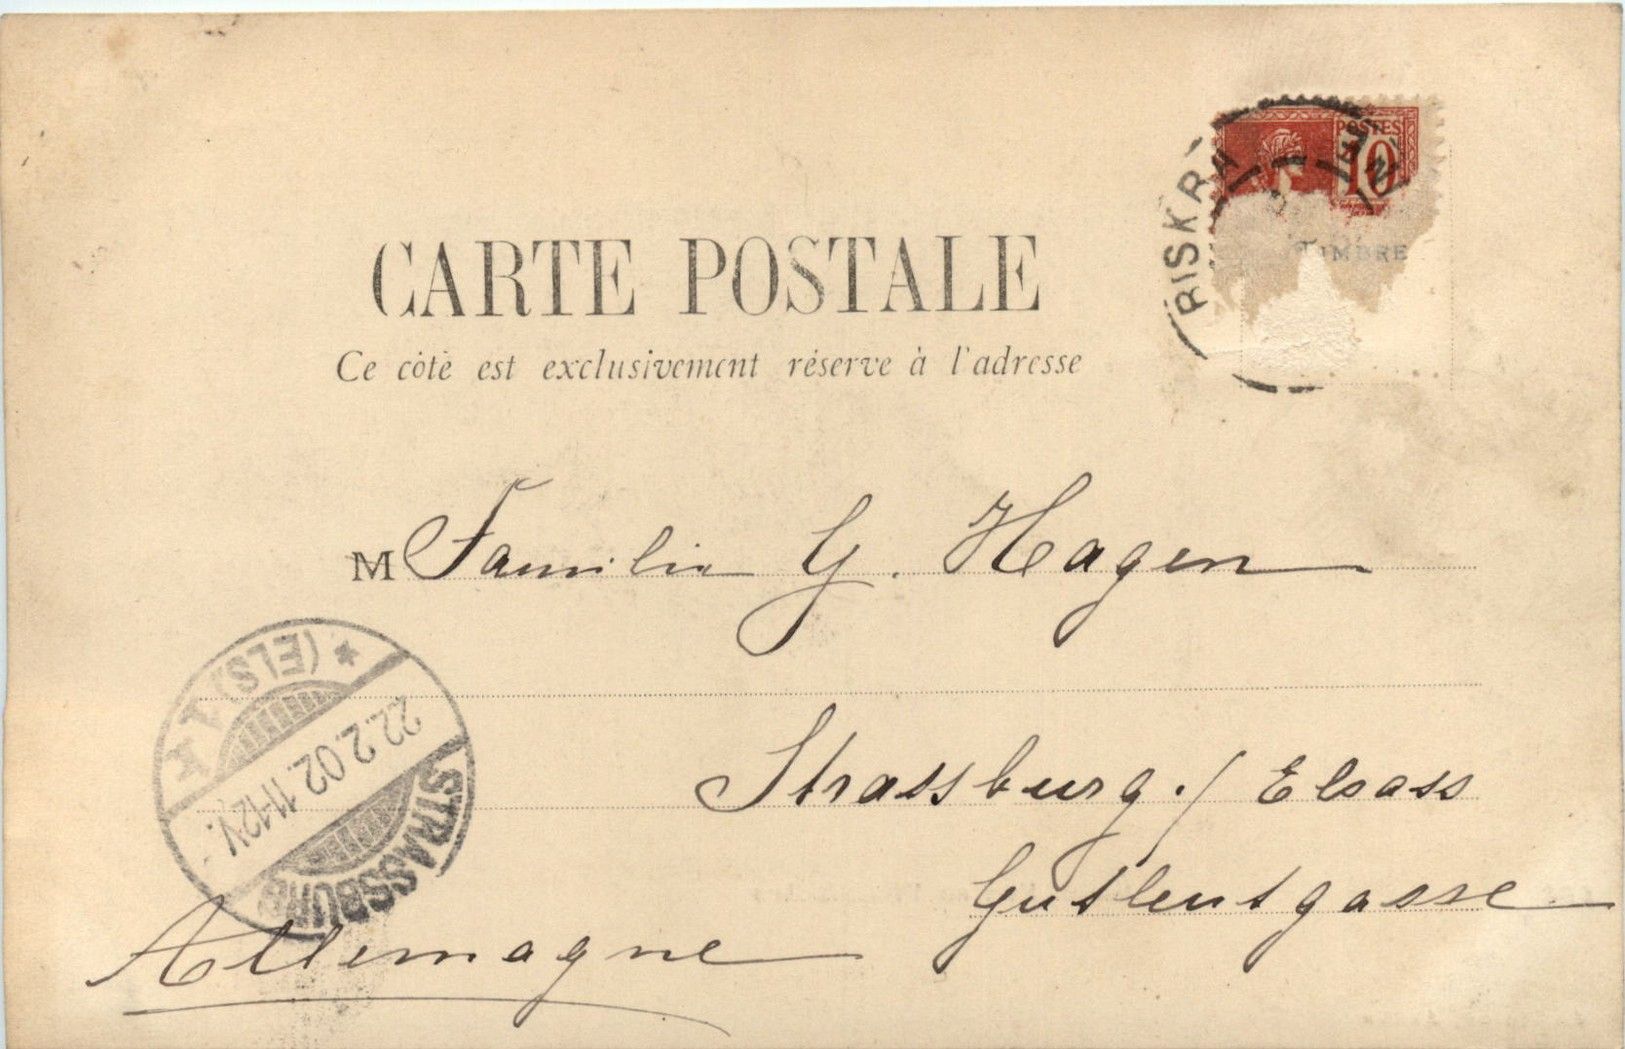 POSTES
10
BISKRA
TIMBRE
CARTE POSTALE
Ce côté est exclusivement réservé à l'adresse
M Familie G. Hagen
Strassburg ./ Elsass
Gutleutgasse
Allemagne
STRASSBURG
(ELS) *
22.2.02. 11-12V.